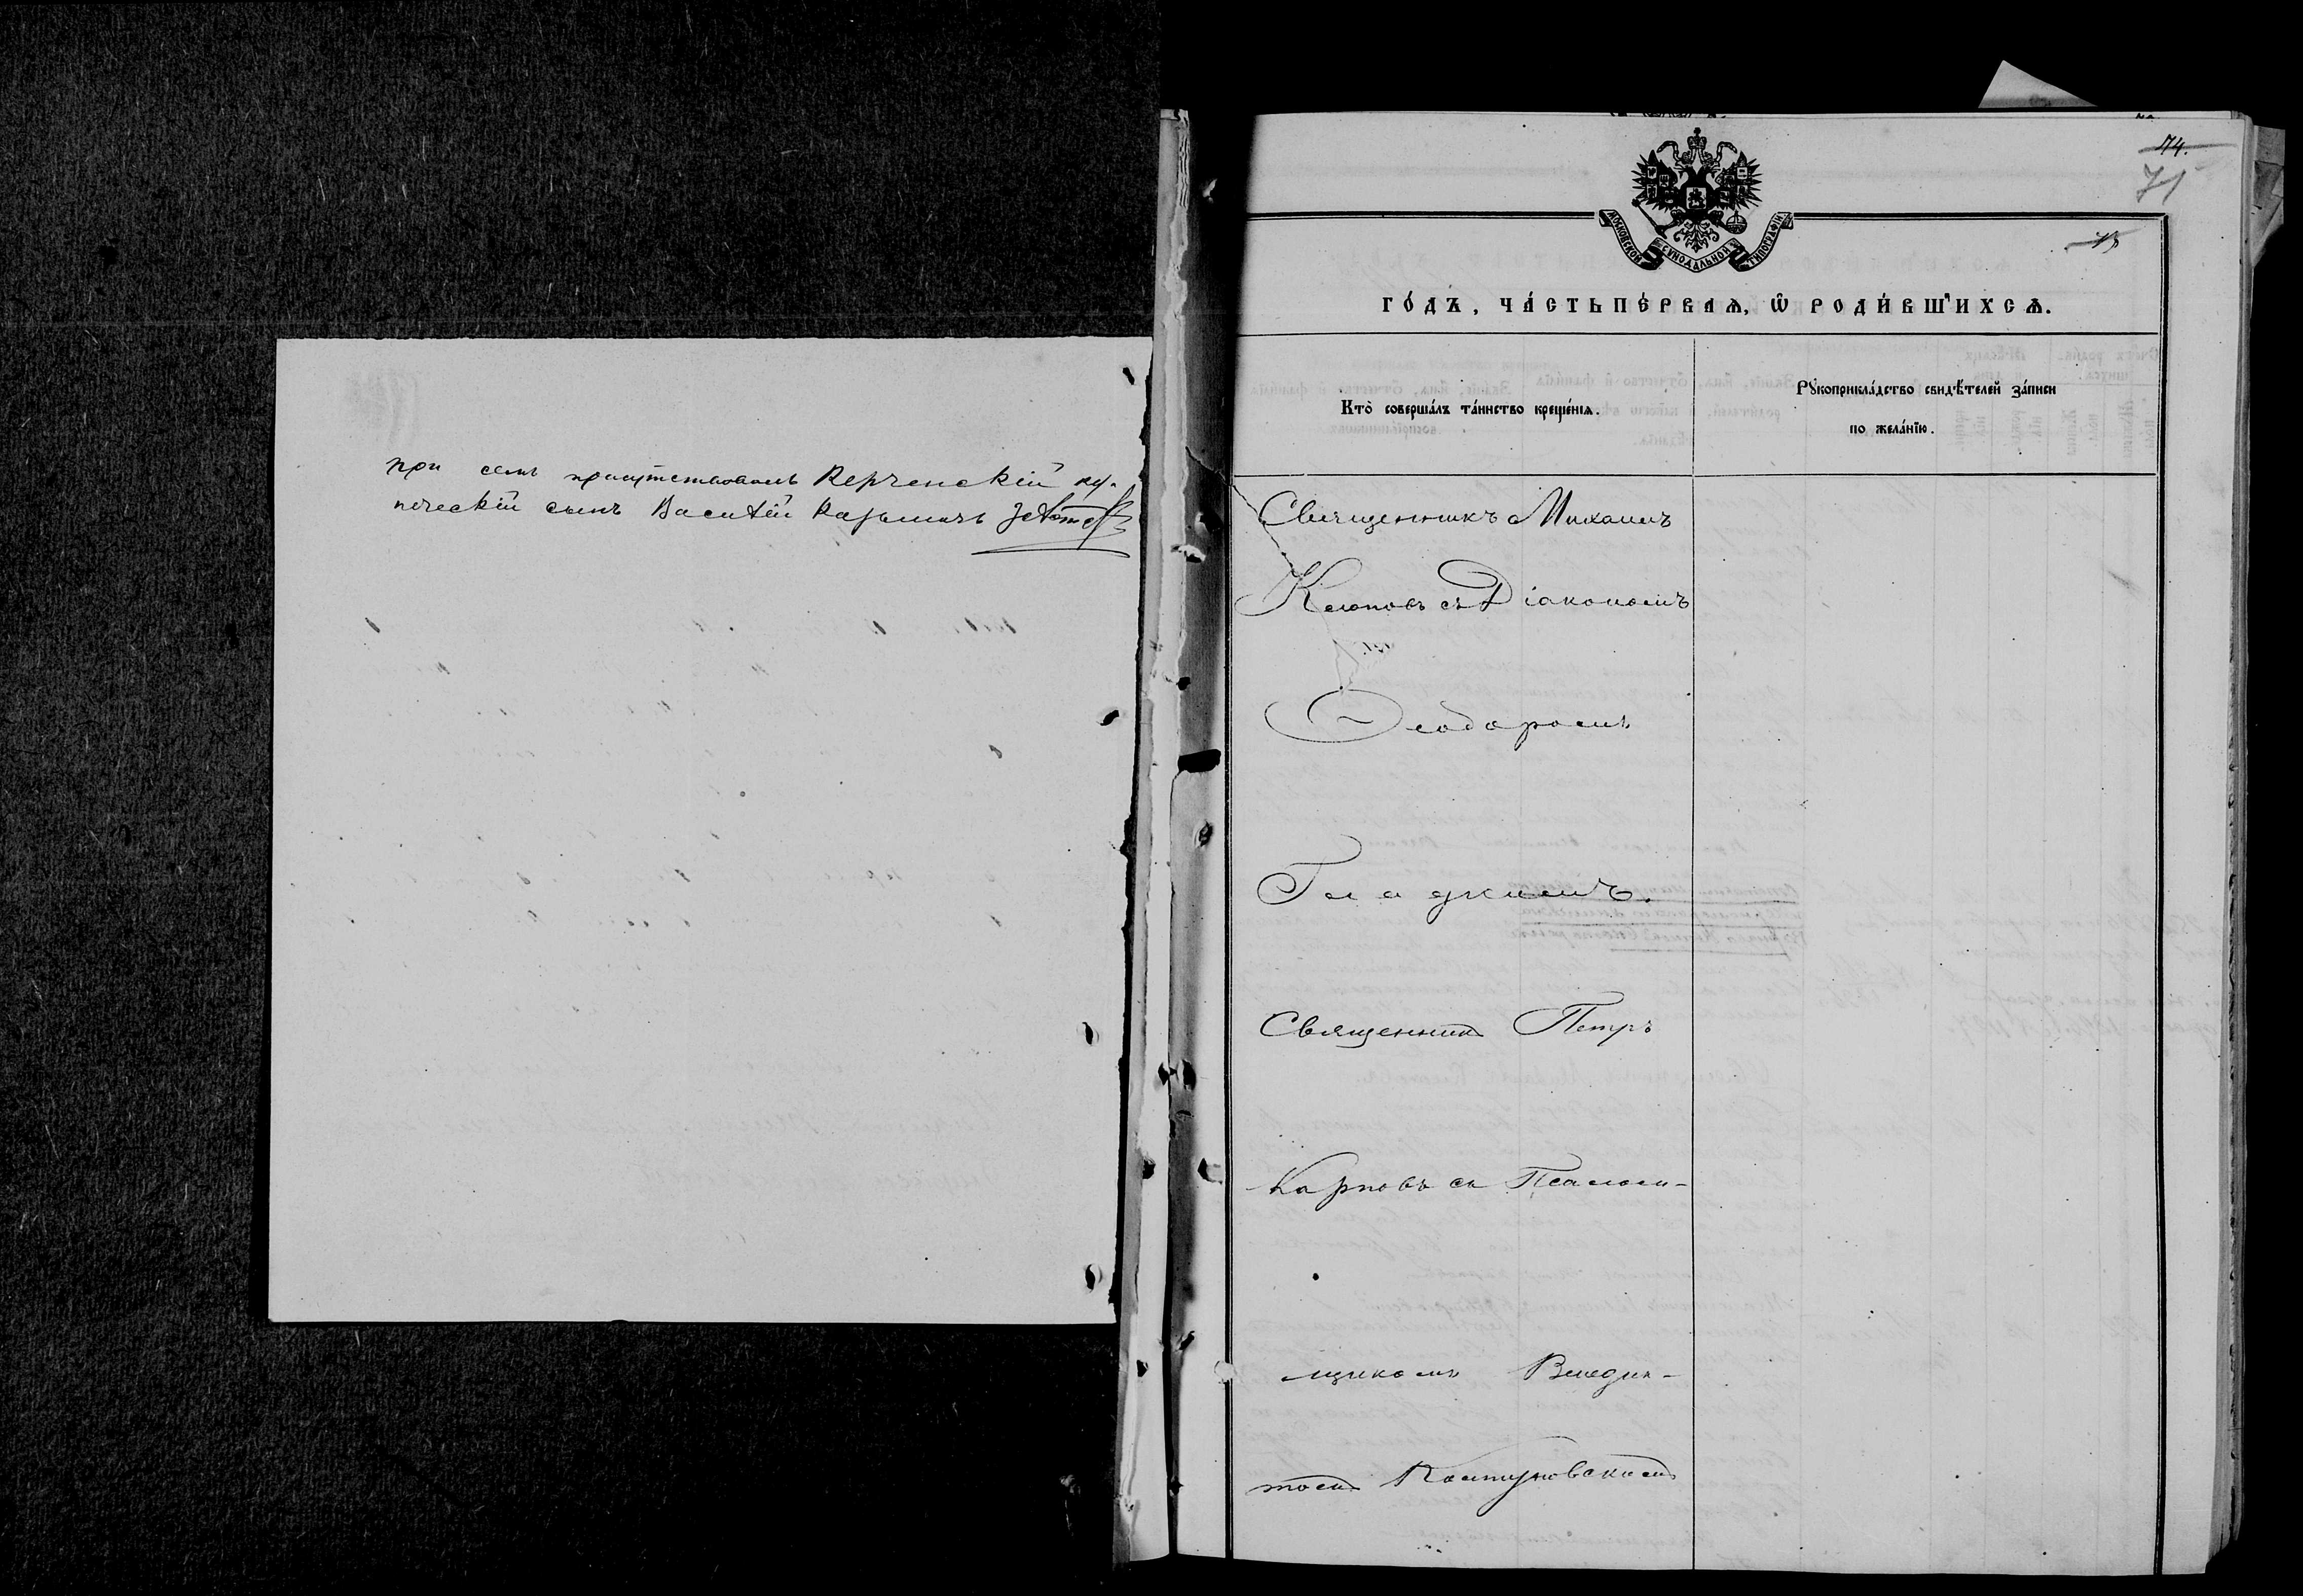 при семъ присутствовалъ Керченскій ку-
печескій сынъ Василій Казьмичъ
74.
71
МОСКОВСКОЙ СѴНОДАЛЬНОЙ ТИПОГРАФІИ
го́дъ, ча́сть пе́рвая, ѡ҆ роди́вшихся.
Кто̀ соверша́лъ та́инство креще́нія.
Рꙋкоприкла́дство свидѣ́телей за́писи
по жела́нїю.
Священникъ Михаилъ
Клоповъ съ Діакономъ
Ѳеодоромъ
Гладкимъ.
Священникъ Петръ
Карповъ съ Псалом-
щикомъ Венедик-
томъ